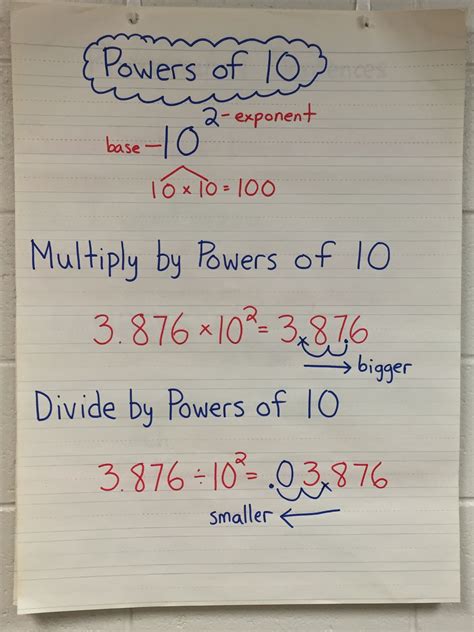 Powers of 10
2-exponent
base-10
10 × 10 = 100
Multiply by Powers of 10
3.876 × 10² = 3×87.6
→ bigger
Divide by Powers of 10
3.876 ÷ 10² = .03×876
smaller ←